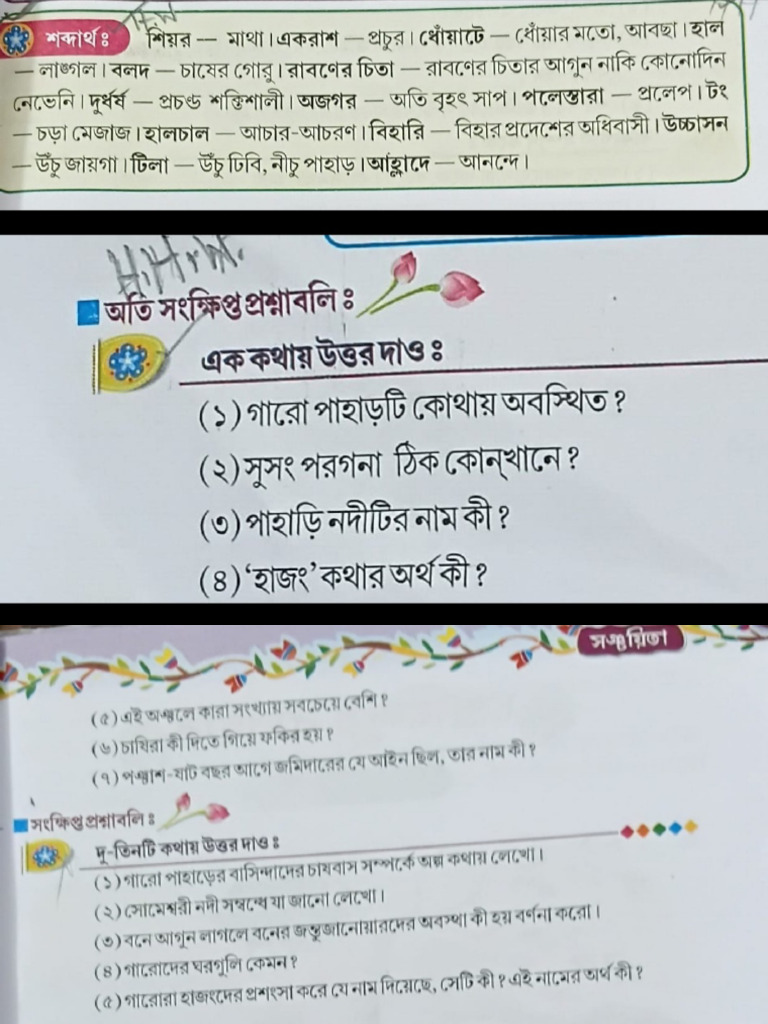 H.W
শব্দার্থঃ শিয়র — মাথা। একরাশ — প্রচুর। ধোঁয়াটে — ধোঁয়ার মতো, আবছা। হাল
— লাঙ্গল। বলদ — চাষের গোরু। রাবণের চিতা — রাবণের চিতার আগুন নাকি কোনোদিন
নেভেনি। দুর্ধর্ষ — প্রচণ্ড শক্তিশালী। অজগর — অতি বৃহৎ সাপ। পলেস্তারা — প্রলেপ। টং
— চড়া মেজাজ। হালচাল — আচার-আচরণ। বিহারি — বিহার প্রদেশের অধিবাসী। উচ্চাসন
— উঁচু জায়গা। টিলা — উঁচু ঢিবি, নীচু পাহাড়। আহ্লাদে — আনন্দে।
অতি সংক্ষিপ্ত প্রশ্নাবলি ঃ
এক কথায় উত্তর দাও ঃ
(১) গারো পাহাড়টি কোথায় অবস্থিত ?
(২) সুসং পরগনা ঠিক কোন্‌খানে ?
(৩) পাহাড়ি নদীটির নাম কী ?
(৪) 'হাজং' কথার অর্থ কী ?
সঞ্চয়িতা
(৫) এই অঞ্চলে কারা সংখ্যায় সবচেয়ে বেশি ?
(৬) চাষিরা কী দিতে গিয়ে ফকির হয় ?
(৭) পঞ্চাশ-ষাট বছর আগে জমিদারের যে আইন ছিল, তার নাম কী ?
সংক্ষিপ্ত প্রশ্নাবলি ঃ
দু-তিনটি কথায় উত্তর দাও ঃ
(১) গারো পাহাড়ের বাসিন্দাদের চাষবাস সম্পর্কে অল্প কথায় লেখো।
(২) সোমেশ্বরী নদী সম্বন্ধে যা জানো লেখো।
(৩) বনে আগুন লাগলে বনের জন্তুজানোয়ারদের অবস্থা কী হয় বর্ণনা করো।
(৪) গারোদের ঘরগুলি কেমন ?
(৫) গারোরা হাজংদের প্রশংসা করে যে নাম দিয়েছে, সেটি কী ? এই নামের অর্থ কী ?